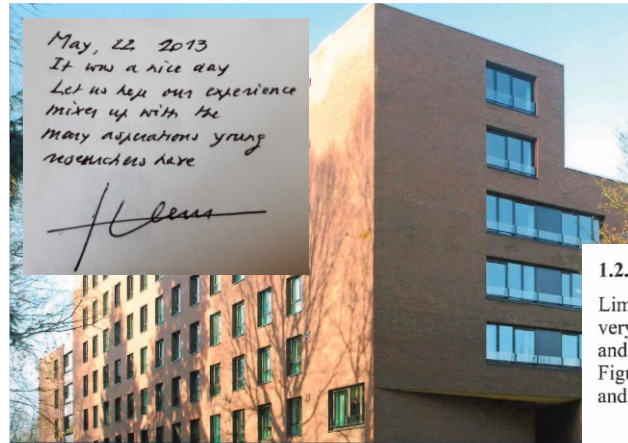 May, 22 2013
It was a nice day
Let us hope our experience
mixes up with the
many aspirations young
researchers have
1.2.
Lim
very
and
Figu
and